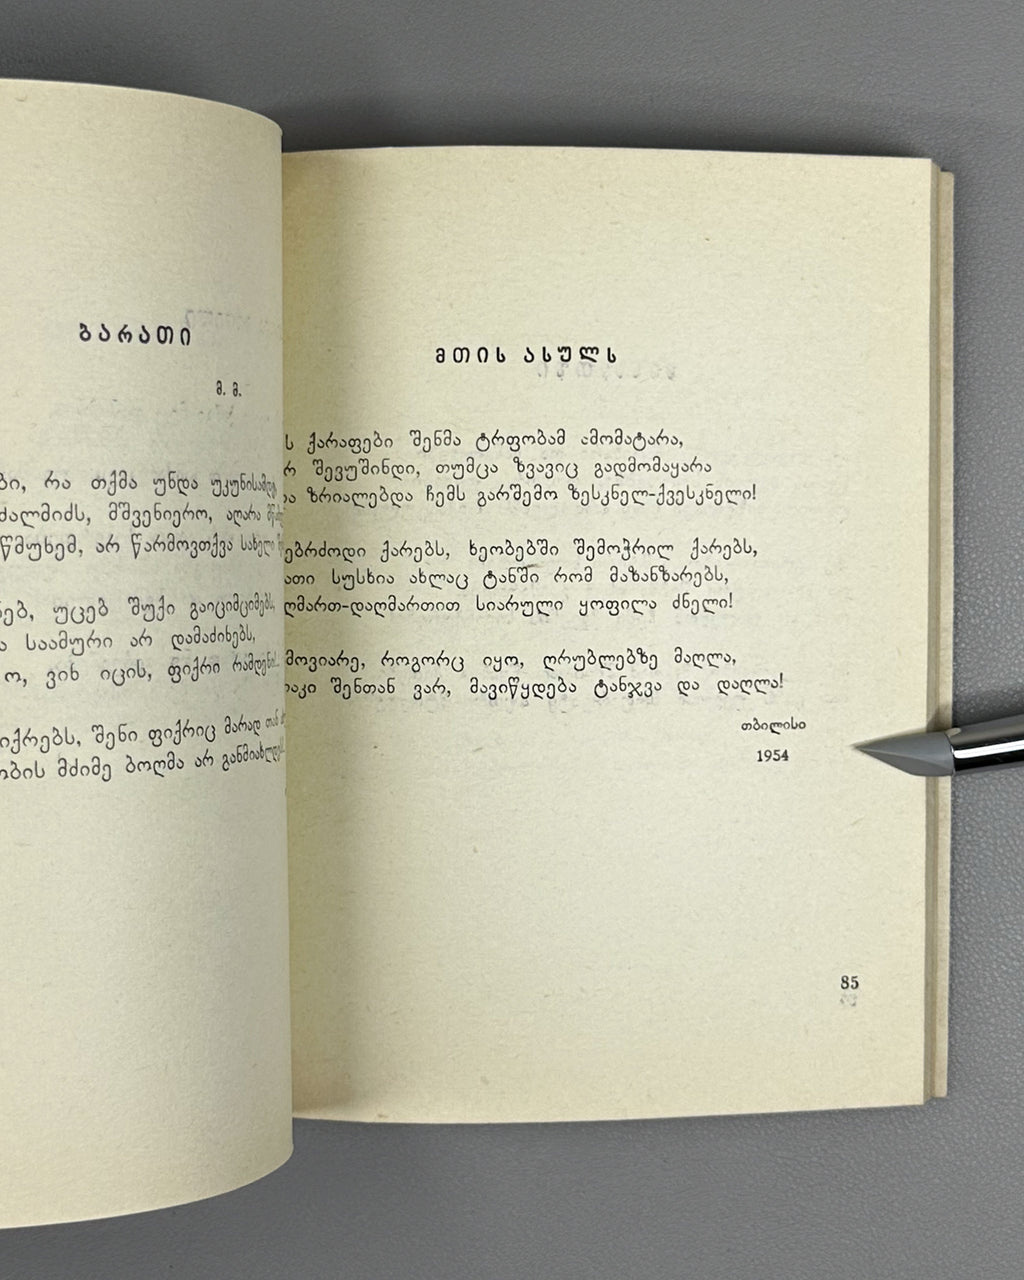 ბარათი
მ. მ.
რა თქმა უნდა უკუნისამდე
მშვენიერო, აღარა
არ წარმოვთქვა სახელი
უცებ შუქი გაიციმციმებს,
საამური არ დამაძინებს,
ვინ იცის, ფიქრი რამდენი
შენი ფიქრიც მარად თან
მძიმე ბოღმა არ განმიახლდეს
მთის ასულს
ქარაფები შენმა ტრფობამ ამომატარა,
შევუშინდი, თუმცა ზვავიც გადმომაყარა
ზრიალებდა ჩემს გარშემო ზესკნელ-ქვესკნელი!
ქარებს, ხეობებში შემოჭრილ ქარებს,
სუსხია ახლაც ტანში რომ მაზანზარებს,
სიარული ყოფილა ძნელი!
როგორც იყო, ღრუბლებზე მაღლა,
შენთან ვარ, მავიწყდება ტანჯვა და დაღლა!
თბილისი
1954
85